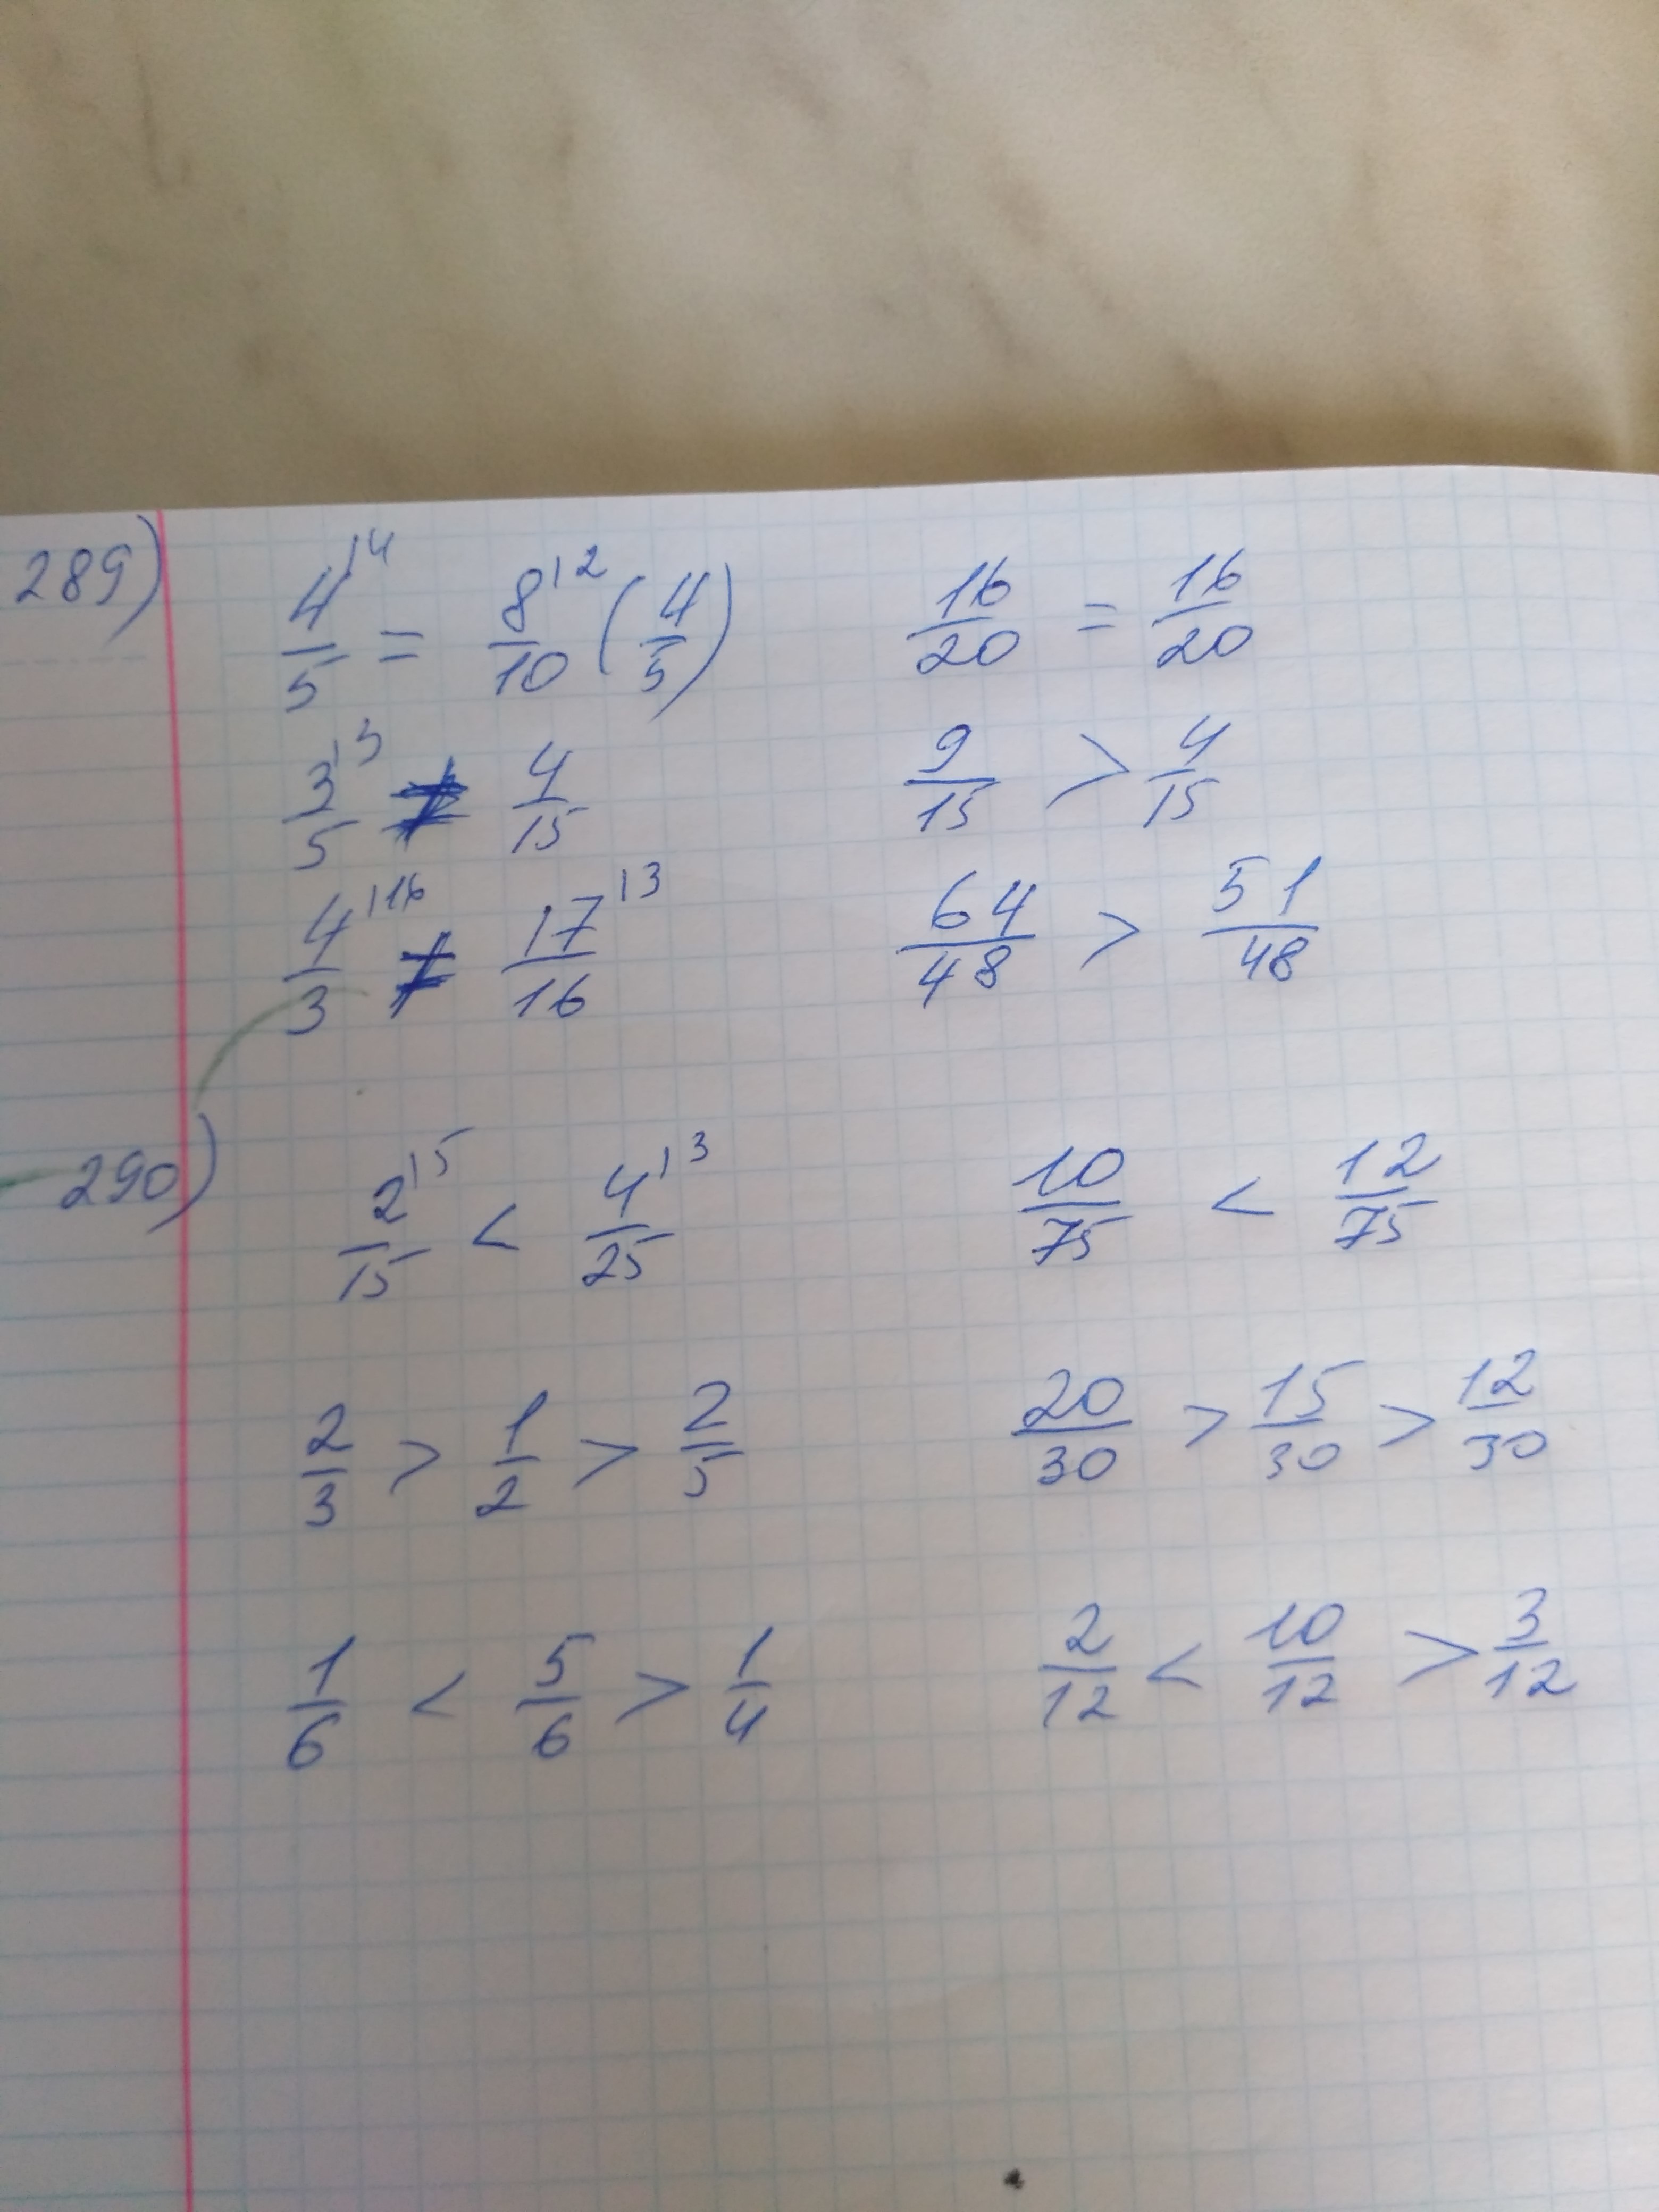 289) 4/5 |4 = 8/10 |2 (4/5) 16/20 = 16/20
3/5 |3 ≠ 4/15 9/15 > 4/15
4/3 |16 ≠ 17/16 |3 64/48 > 51/48
290) 2/15 |5 < 4/25 |3 10/75 < 12/75
2/3 > 1/2 > 2/5 20/30 > 15/30 > 12/30
1/6 < 5/6 > 1/4 2/12 < 10/12 > 3/12